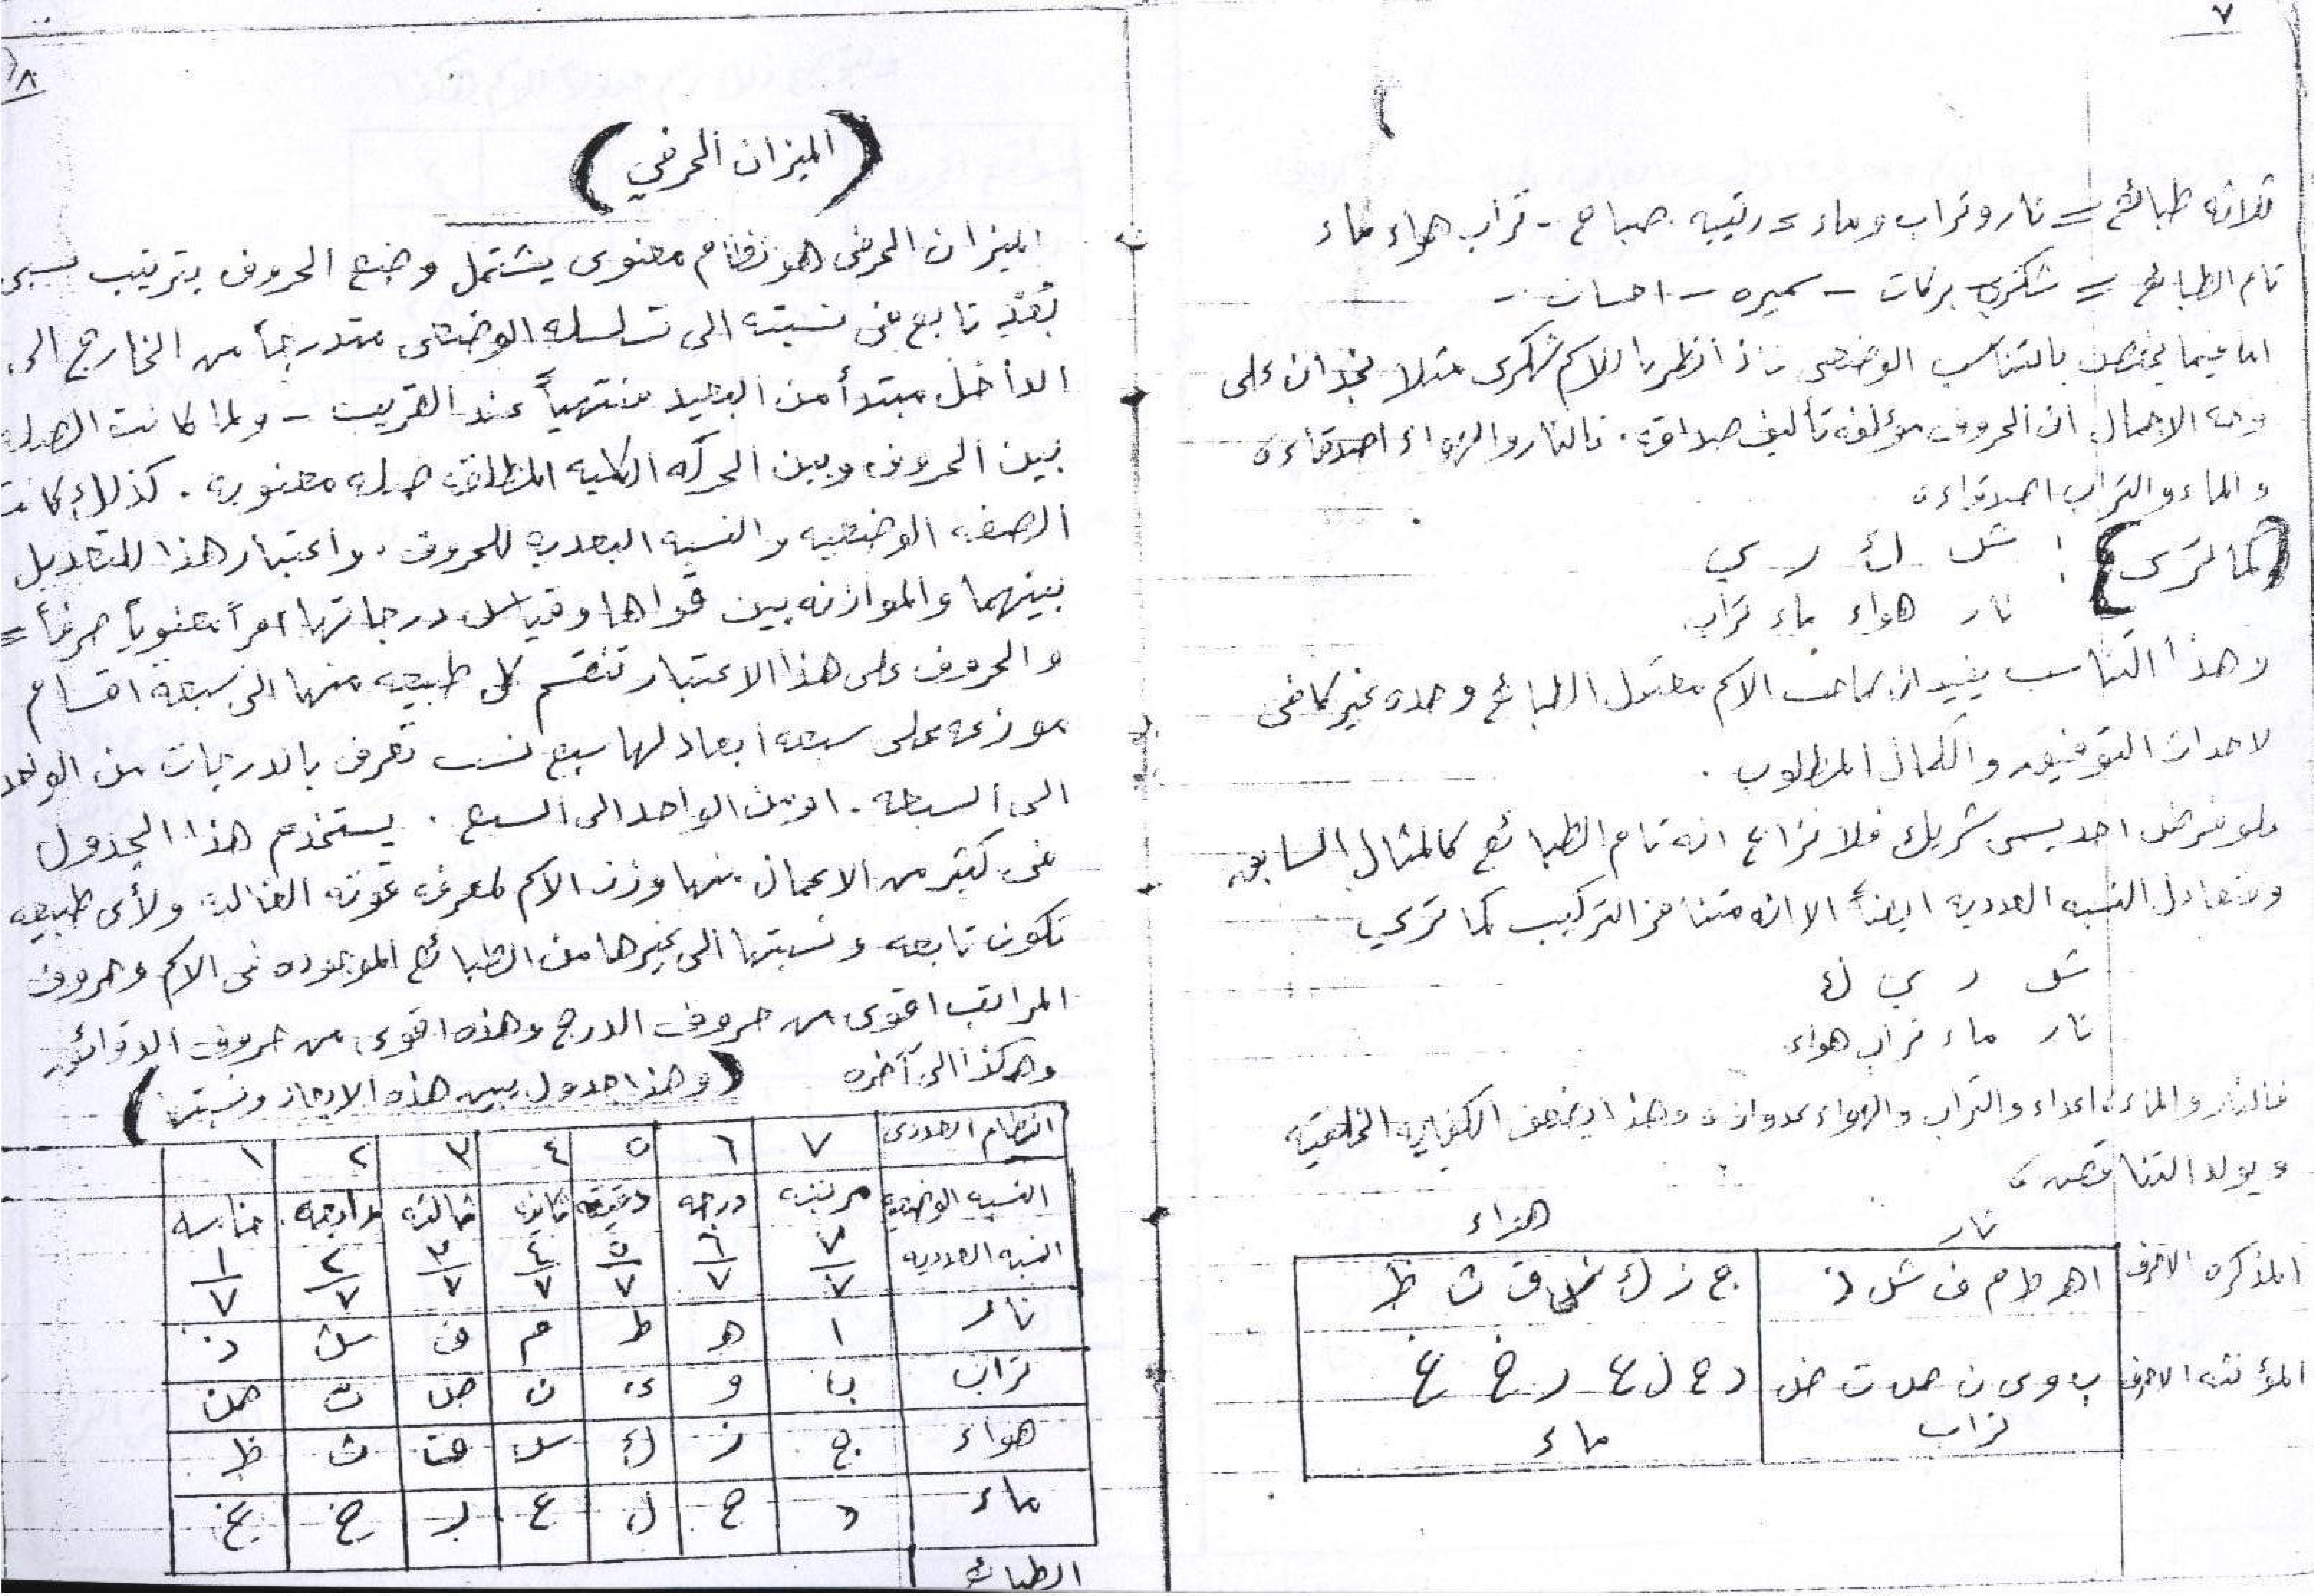 ٧
ثلاثه طبائع = نار وتراب وماء = رتيبه. صباح - تراب هواء ماء
تام الطبائع = شكري بركات - سميره - احسان -
اما فيما يختص بالتناسب الوضعى فاذا نظرنا للاسم شكرى مثلا نجد ان على
وجه الاجمال ان الحروف مؤلفه تأليف صداقه. فالنار والهواء اصدقاء
والماء والتراب اصدقاء
(كما ترى) : ش ك ر ي
نار هواء ماء تراب
وهذا التناسب يفيد ان صاحب الاسم معتدل الطبائع وحده غير كافى
لاحداث التوفيق والكمال المطلوب .
فلو فرض احد يسمى شريك فلا نزاع انه تام الطبائع كالمثال السابق
ومتعادل النسبه العدديه ايضاً الا انه متنافر التركيب كما تري
ش ر ي ك
نار ماء تراب هواء
فالنار والماء اعداء والتراب والهواء وهذا يضعف الخلقية
ويولد التناقص
نار هواء
المذكره الاحرف ا هـ ط م ف ش ذ ج ز ك س ق ث ظ
المؤنثه الاحرف ب و ى ن ص ت ض د ح ل ع ر خ غ
تراب ماء
٨
(الميزان الحرفي)
الميزان الحرفى هو نظام معنوى يشتمل وضع الحروف بترتيب
بُعْدِ تابع فى نسبته الى تسلسله الوضعى متدرجاً من الخارج الى
الداخل مبتدأ من البعيد منتهياً عند القريب - ولما كانت الصله
بين الحروف وبين الحركه الكليه المطلقه صله معنويه . كذلك كانت
الصفه الوضعيه والنسبه البعديه للحروف . واعتبار هذا للتعديل
بينهما والموازنه بين قواها وقياس درجاتها امراً معنوياً صرفاً =
والحروف على هذا الاعتبار تنقسم كل طبيعه منها الى سبعه اقسام
موزعه على سبعه ابعاد لها سبع نسب تعرف بالدرجات من الواحد
الى السبعه . او من الواحد الى السبع . يستخدم هذا الجدول
فى كثير من الاعمال منها وزن الاسم لمعرفه قوته الغالبه ولأى طبيعه
تكون تابعه ونسبتها الى غيرها من الطبائع الموجوده فى الاسم وحروف
المراتب اقوى من حروف الدرج وهذه اقوى من حروف الدقائق
وهكذا الى آخره (وهذا جدول يبين هذه الابعاد ونسبتها)
النظام العددى ٧ ٦ ٥ ٤ ٣ ٢ ١
النسبه الوضعيه مرتبه درجه دقيقه ثانيه ثالثه رابعه خامسه
النسبه العدديه ٧/٧ ٦/٧ ٥/٧ ٤/٧ ٣/٧ ٢/٧ ١/٧
نار ا هـ ط م ف ش ذ
تراب ب و ى ن ص ت ض
هواء ج ز ك س ق ث ظ
ماء د ح ل ع ر خ غ
الطبائ